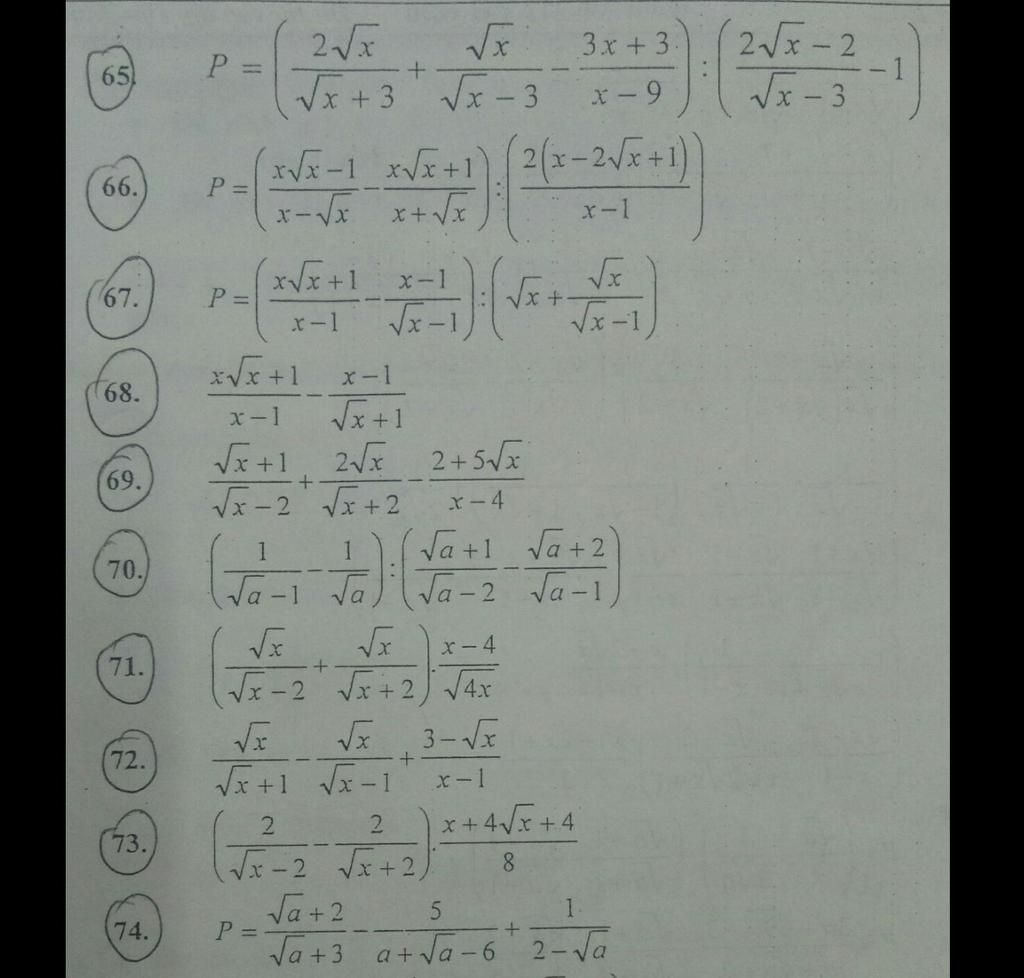 65. P = (2√x/(√x + 3) + √x/(√x − 3) − (3x + 3)/(x − 9)) : ((2√x − 2)/(√x − 3) − 1)
66. P = ((x√x − 1)/(x − √x) − (x√x + 1)/(x + √x)) : (2(x − 2√x + 1)/(x − 1))
67. P = ((x√x + 1)/(x − 1) − (x − 1)/(√x − 1)) : (√x + √x/(√x − 1))
68. (x√x + 1)/(x − 1) − (x − 1)/(√x + 1)
69. (√x + 1)/(√x − 2) + 2√x/(√x + 2) − (2 + 5√x)/(x − 4)
70. (1/(√a − 1) − 1/√a) : ((√a + 1)/(√a − 2) − (√a + 2)/(√a − 1))
71. (√x/(√x − 2) + √x/(√x + 2)) . (x − 4)/√4x
72. √x/(√x + 1) − √x/(√x − 1) + (3 − √x)/(x − 1)
73. (2/(√x − 2) − 2/(√x + 2)) . (x + 4√x + 4)/8
74. P = (√a + 2)/(√a + 3) − 5/(a + √a − 6) + 1/(2 − √a)